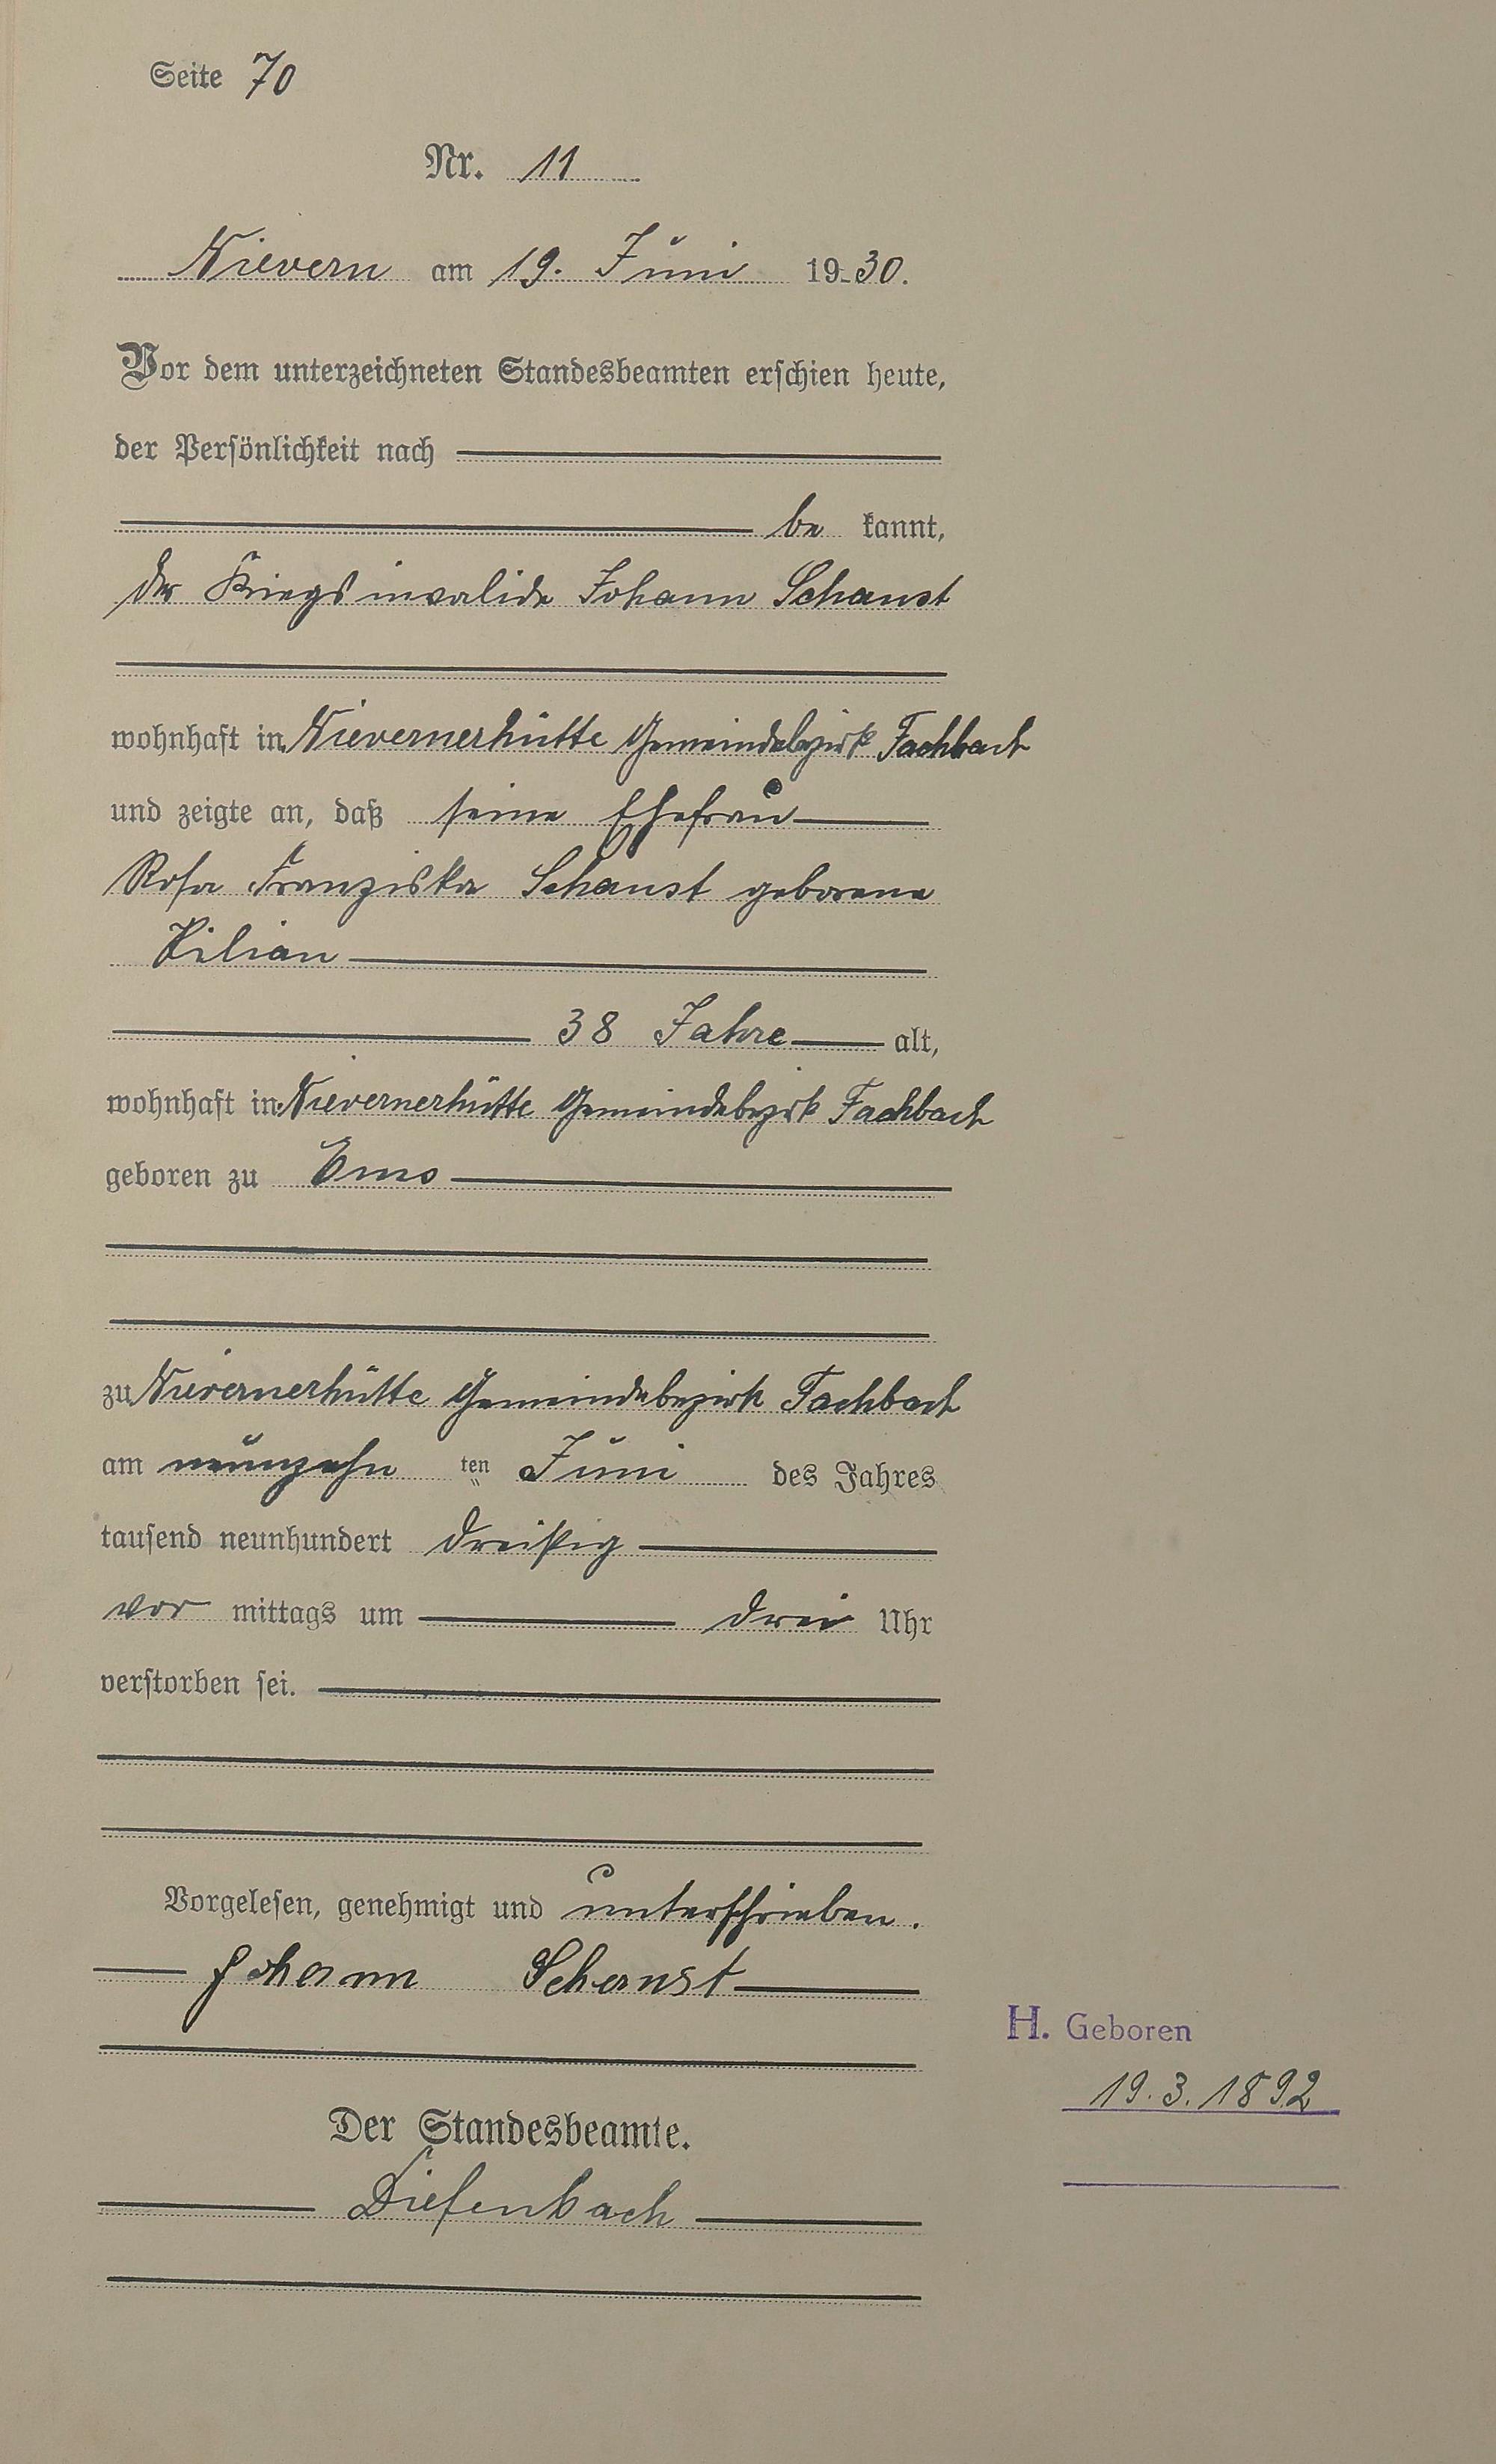 Seite 70
Nr. 11
Nievern am 19. Juni 1930.
Vor dem unterzeichneten Standesbeamten erschien heute,
der Persönlichkeit nach
be kannt,
der Kriegsinvalide Johann Schaust
wohnhaft in Nievernerhütte Gemeindebezirk Fachbach
und zeigte an, daß seine Ehefrau
Rosa Franziska Schaust geborene
Kilian
38 Jahre alt,
wohnhaft in Nievernerhütte Gemeindebezirk Fachbach
geboren zu Ems
zu Nievernerhütte Gemeindebezirk Fachbach
am neunzehn ten Juni des Jahres
tausend neunhundert dreißig
vor mittags um drei Uhr
verstorben sei.
Vorgelesen, genehmigt und unterschrieben.
Johann Schaust
H. Geboren
19.3.1892
Der Standesbeamte.
Diefenbach